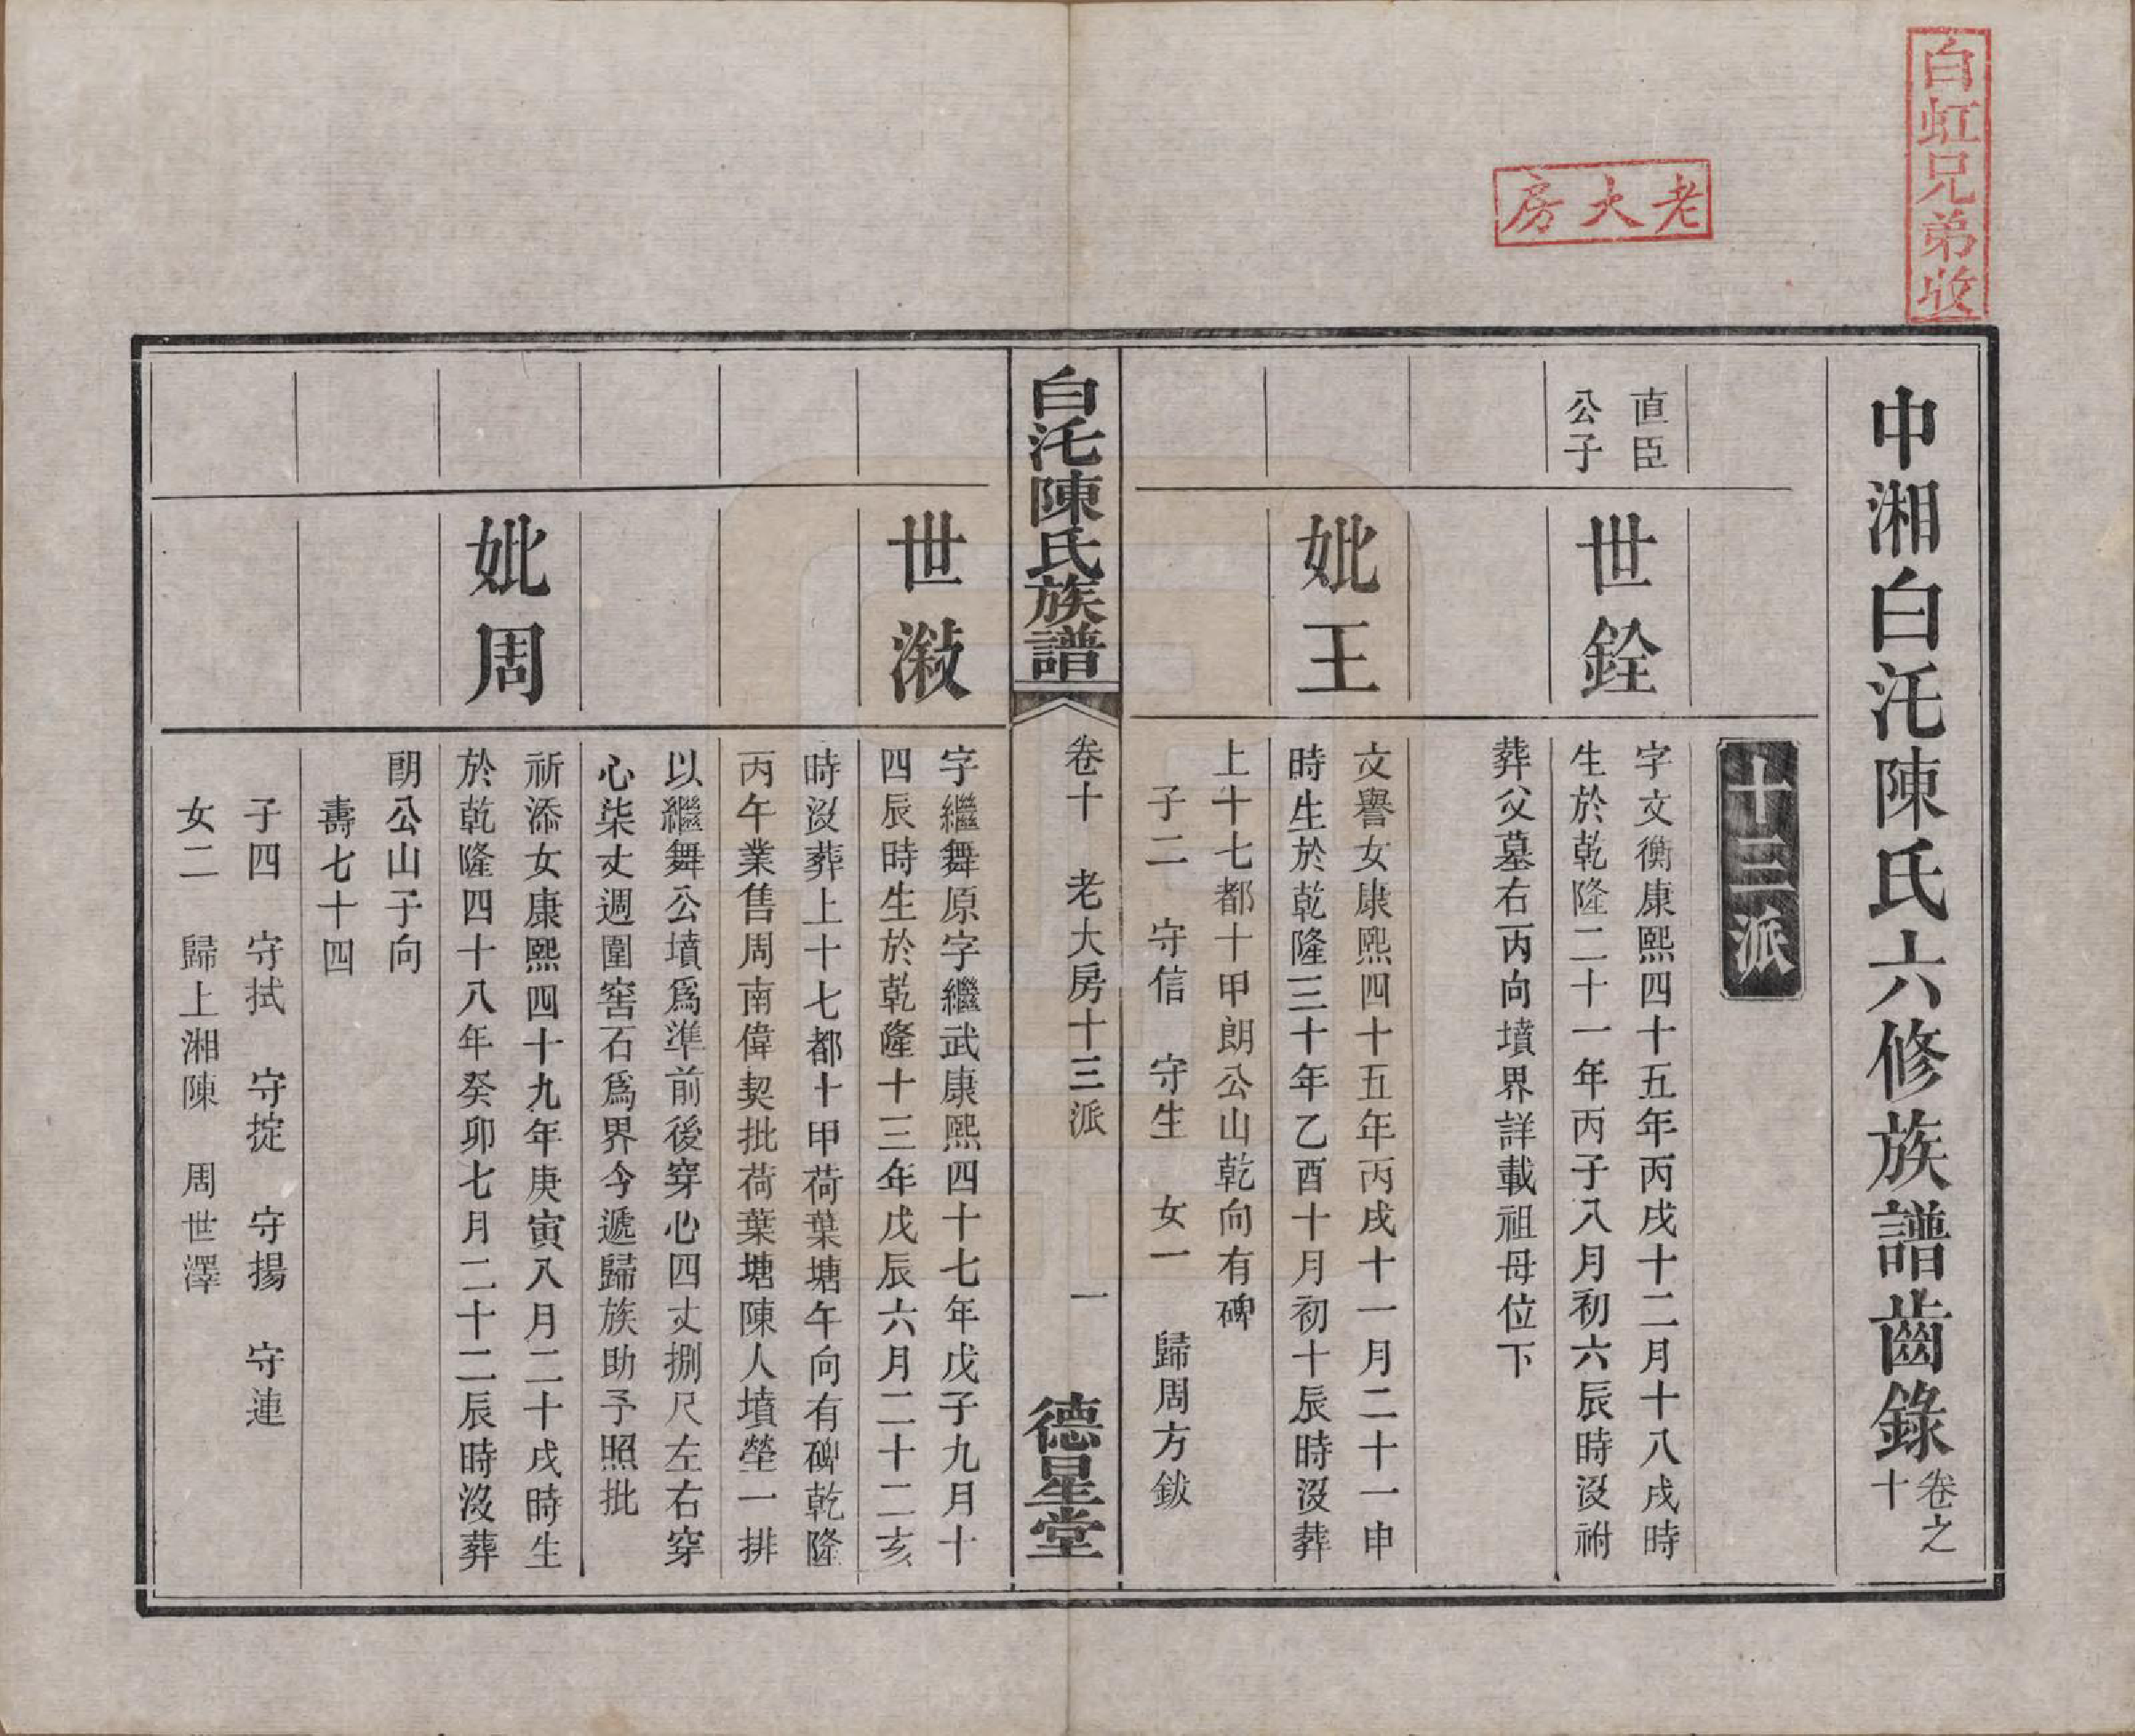 白虹兄弟收
老大房
中湘白汑陳氏六修族譜齒錄卷之十
十三派
直臣公子
世銓
字文衡康熙四十五年丙戌十二月十八戌時
生於乾隆二十一年丙子八月初六辰時沒祔
葬父墓右丙向墳界詳載祖母位下
妣王
文譽女康熙四十五年丙戌十一月二十一申
時生於乾隆三十年乙酉十月初十辰時沒葬
上十七都十甲朗公山乾向有碑
子二 守信 守生 女一 歸周方鈸
白汑陳氏族譜
卷十 老大房十三派 一
德星堂
世溵
字繼舞原字繼武康熙四十七年戊子九月十
四辰時生於乾隆十三年戊辰六月二十二亥
時沒葬上十七都十甲荷葉塘午向有碑乾隆
丙午業售周南偉契批荷葉塘陳人墳塋一排
以繼舞公墳爲準前後穿心四丈捌尺左右穿
心柒丈週圍窖石爲界今遞歸族助予照批
妣周
祈添女康熙四十九年庚寅八月二十戌時生
於乾隆四十八年癸卯七月二十二辰時沒葬
朗公山子向
壽七十四
子四 守拭 守掟 守揚 守連
女二 歸上湘陳 周世澤